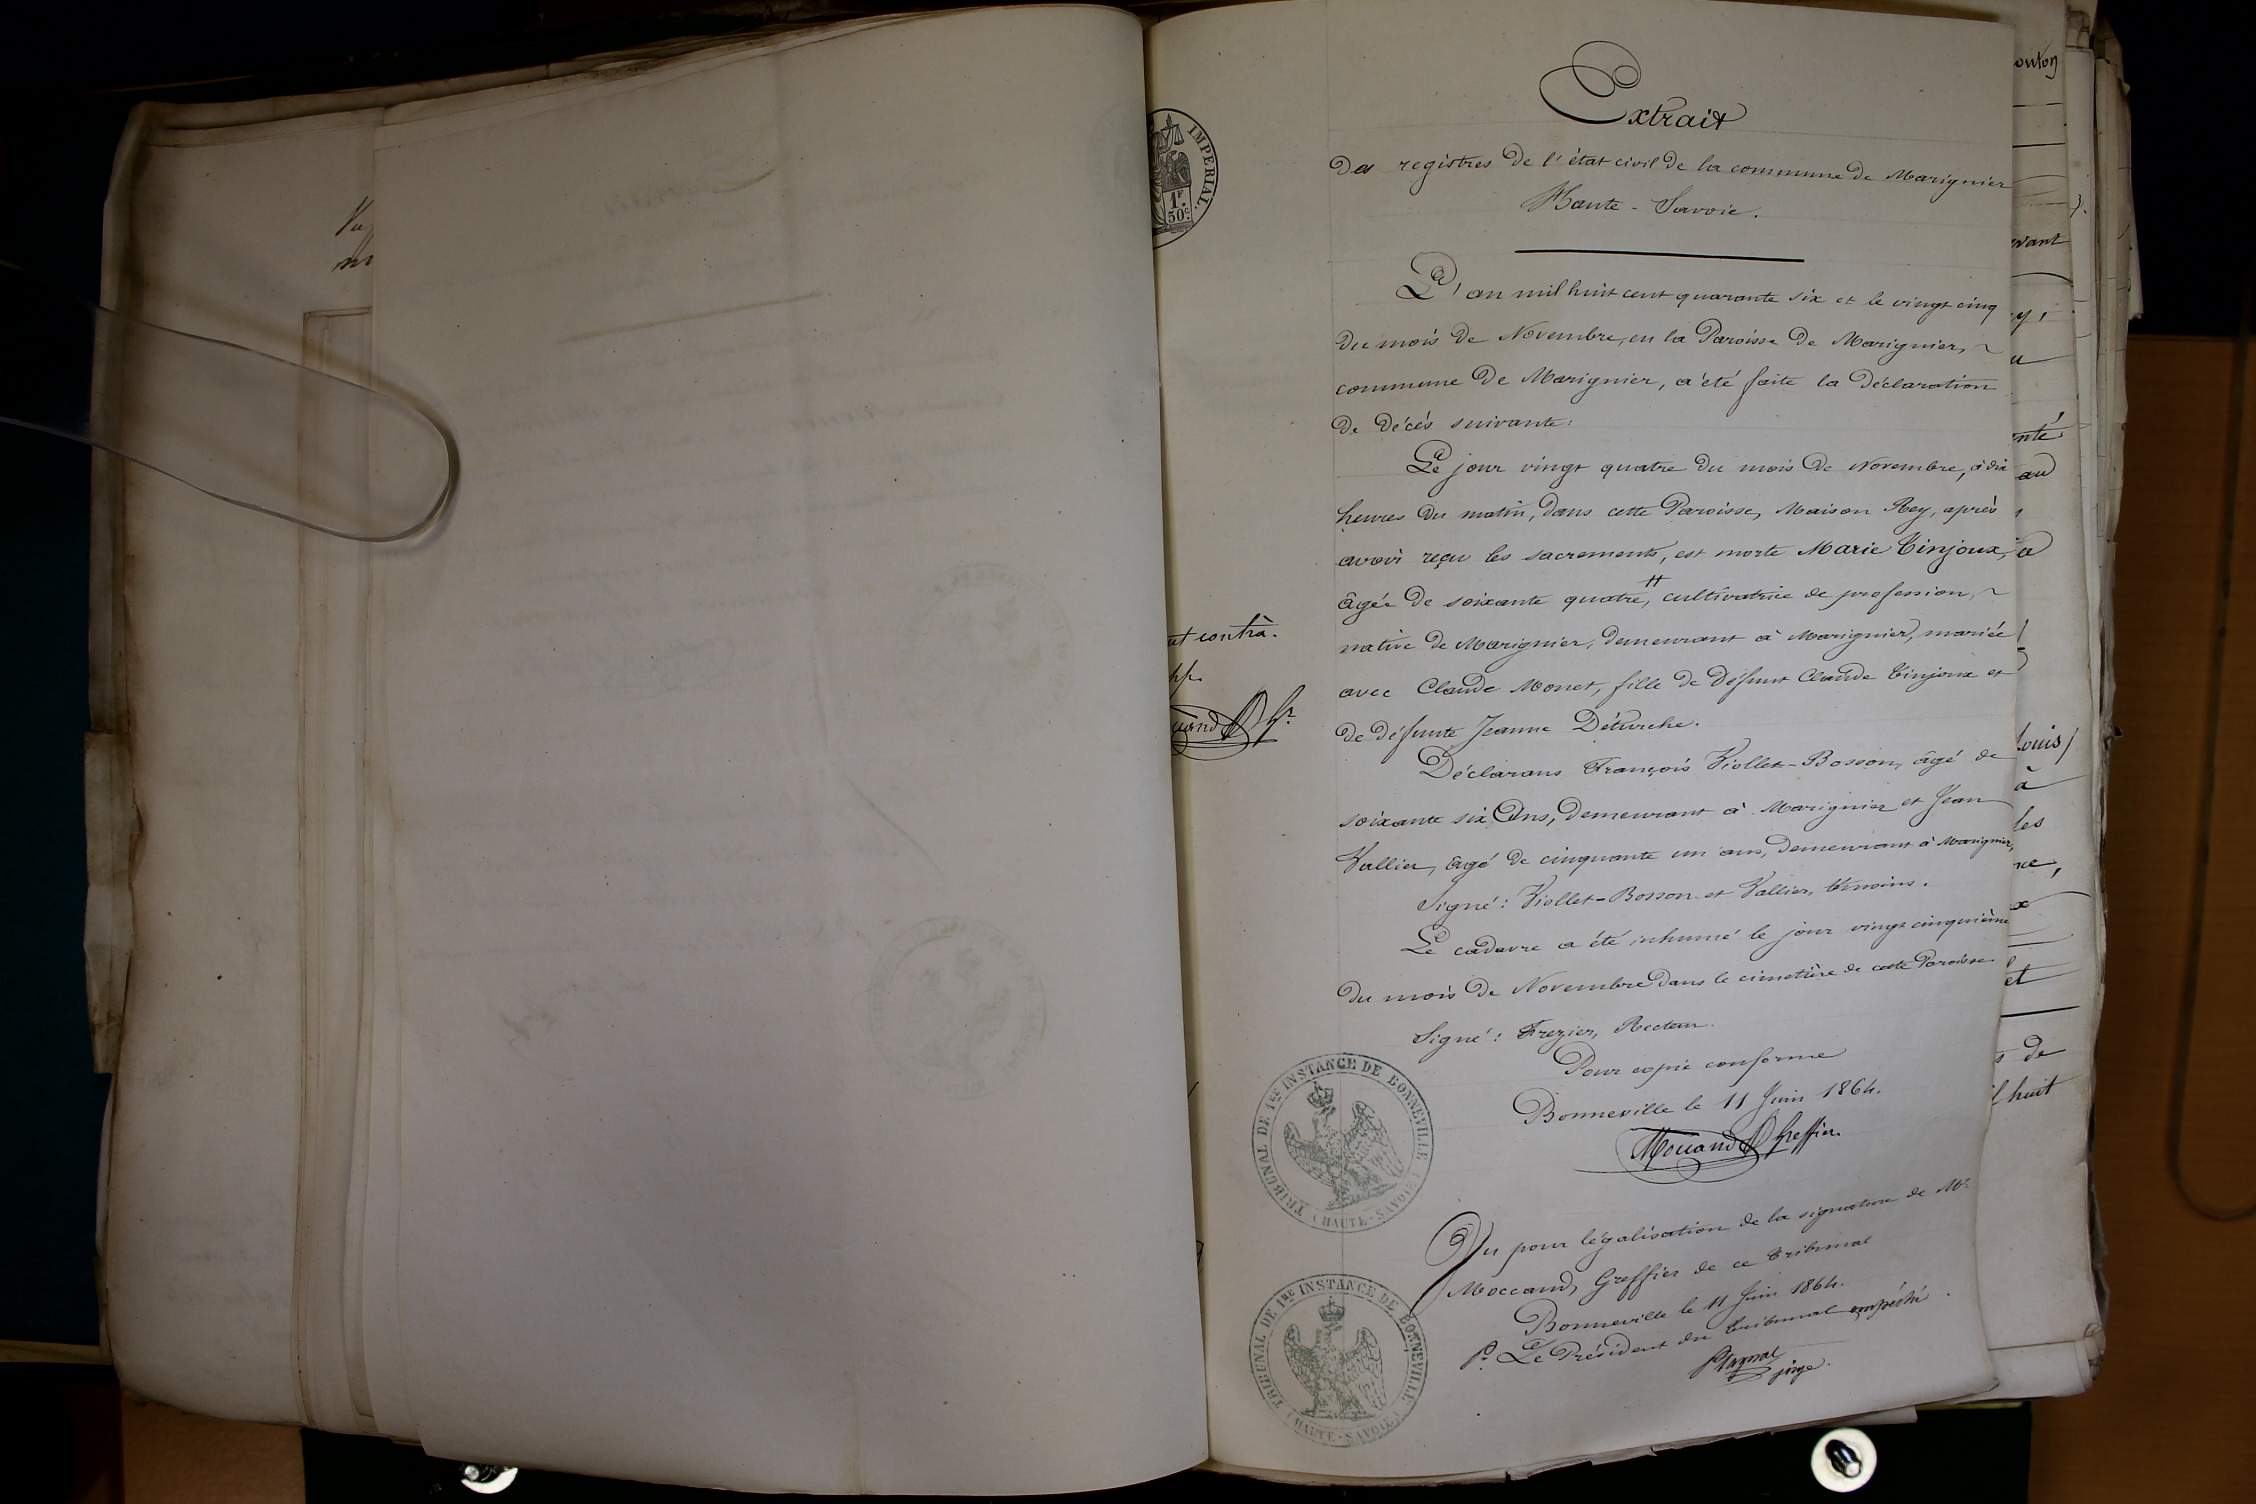 Extrait
des registres de l'état civil de la commune de Marignier
Haute-Savoie.
IMPERIAL.
1F.
50c.
L'an mil huit cent quarante six et le vingt cinq
du mois de Novembre, en la Paroisse de Marignier,
commune de Marignier, a été faite la déclaration
de décés suivante:
Le jour vingt quatre du mois de Novembre, à dix
heures du matin, dans cette Paroisse, Maison Rey, après
avoir reçu les sacrements, est morte Marie Tinjoux,
âgée de soixante quatre, # cultivatrice de profession,
native de Marignier, demeurant à Marignier, mariée
avec Claude Monet, fille de défunt Claude Tinjoux et
de défunte Jeanne Déturche.
Déclarans François Viollet-Bosson, âgé de
soixante six Ans, demeurant à Marignier et Jean
Vallier, âgé de cinquante un ans, demeurant à Marignier,
Signé: Viollet-Bosson et Vallier, témoins.
Le cadavre a été inhumé le jour vingt cinquième
du mois de Novembre dans le cimetière de cette Paroisse.
Signé: Frezier, Recteur.
Pour copie conforme
Bonneville le 11 Juin 1864.
Moccand Greffier.
Vu pour légalisation de la signature de Mr
Moccand, Greffier de ce tribunal
Bonneville le 11 Juin 1864.
Pr. Le Président du tribunal empêché.
juge.
TRIBUNAL DE 1re INSTANCE DE BONNEVILLE
(HAUTE-SAVOIE)
TRIBUNAL DE 1re INSTANCE DE BONNEVILLE
(HAUTE-SAVOIE)
Vu
contrà.
outon
vant
nté
au
a
Louis
à
les
et
de
huit